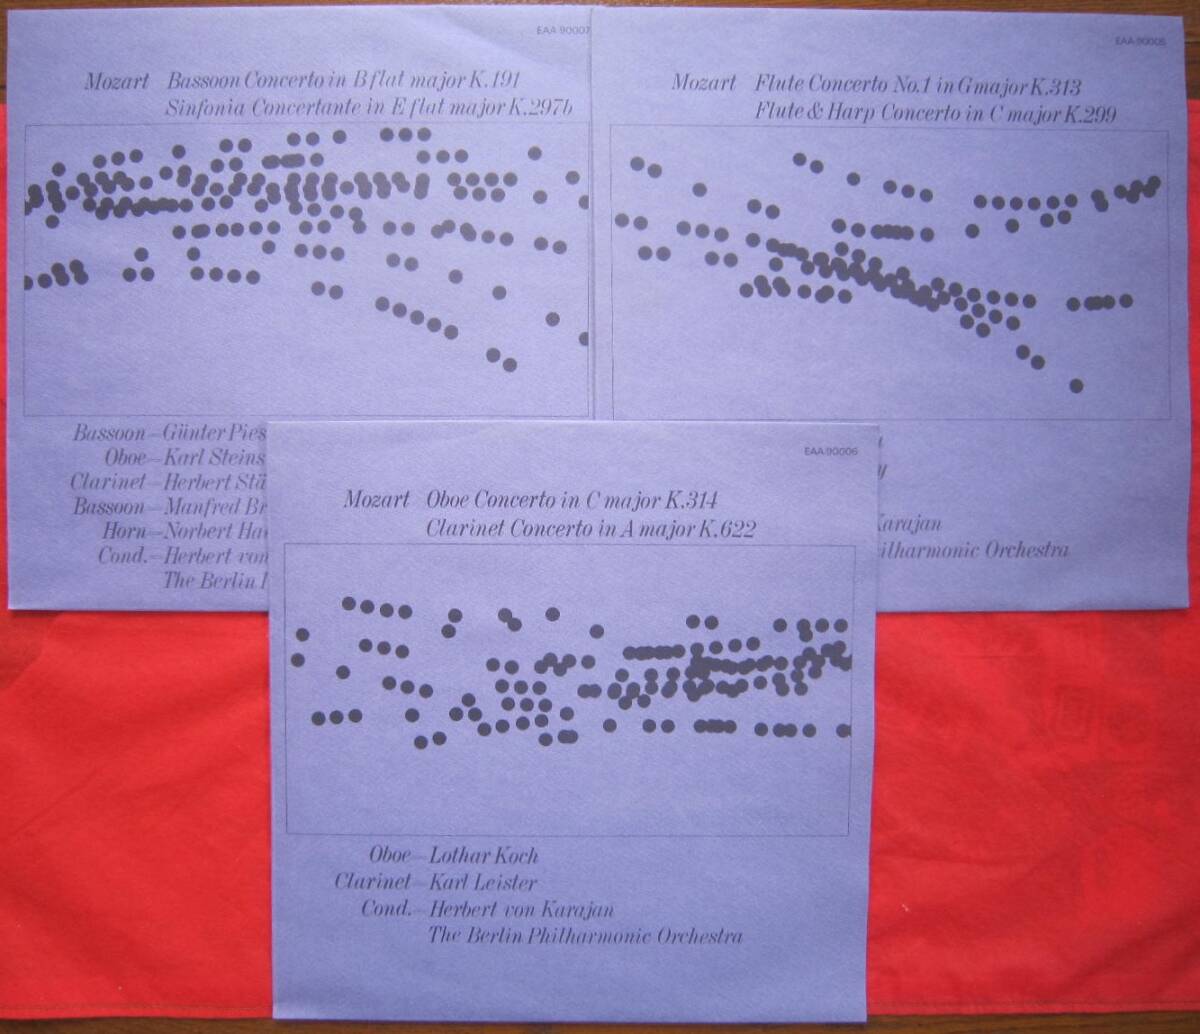 EAA 90007
Mozart Bassoon Concerto in B flat major K.191
Sinfonia Concertante in E flat major K.297b
Bassoon—Günter Pies
Oboe—Karl Steins
Clarinet—Herbert Stä
Bassoon—Manfred Br
Horn—Norbert Hau
Cond.—Herbert von
The Berlin
EAA 90005
Mozart Flute Concerto No.1 in G major K.313
Flute & Harp Concerto in C major K.299
y
Karajan
ilharmonic Orchestra
EAA 90006
Mozart Oboe Concerto in C major K.314
Clarinet Concerto in A major K.622
Oboe—Lothar Koch
Clarinet—Karl Leister
Cond.—Herbert von Karajan
The Berlin Philharmonic Orchestra